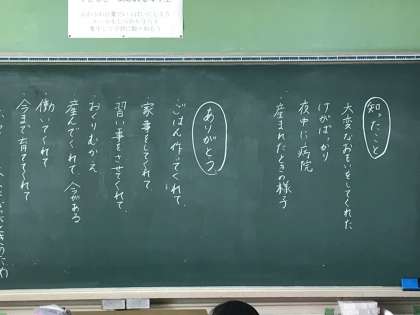 知ったこと
大変なおもいをしてくれた
けがばっかり
夜中に病院
産まれたときの様子
ありがとう
ごはん作ってくれて、
家事をしてくれて
習い事をさせてくれて、
おくりむかえ
産んでくれて、今がある
働いてくれて
今まで育ててくれて